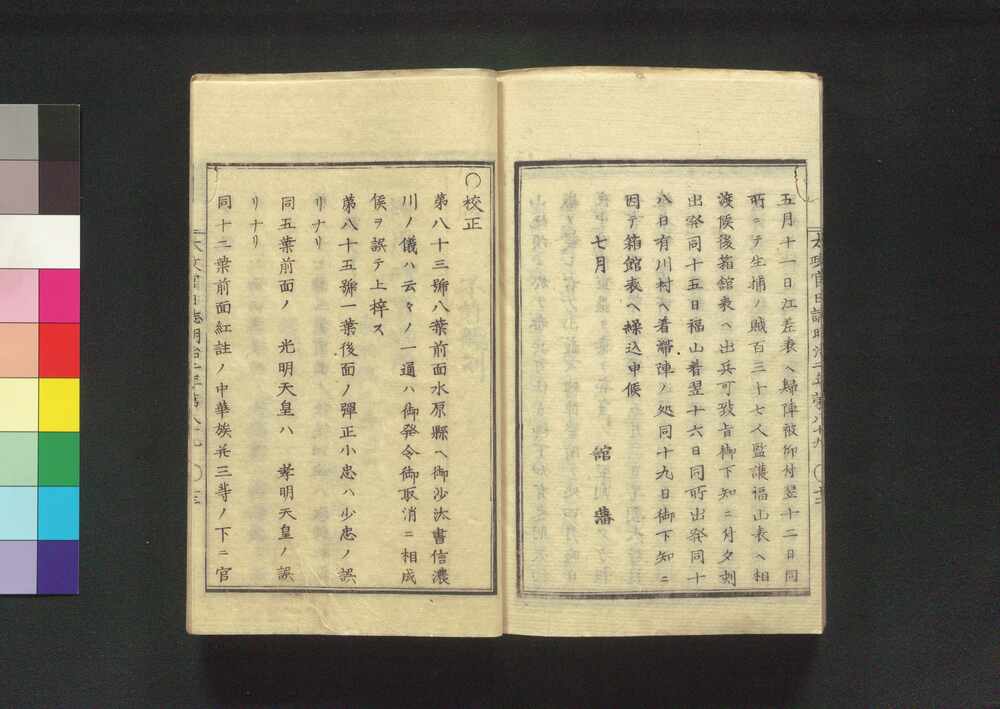 五月十一日江差表ヘ歸陣被仰付翌十二日同
所ニテ生捕ノ賊百三十七人監護福山表ヘ相
渡候後箱館表ヘ出兵可致旨御下知ニ付夕刻
出発同十五日福山着翌十六日同所出発同十
八日有川村ヘ着滞陣ノ処同十九日御下知ニ
因テ箱館表ヘ繰込申候
七月 館藩
太政官日誌明治二年第八十九 〇十二
〇校正
第八十三號八葉前面水原縣ヘ御沙汰書信濃
川ノ儀ハ云々ノ一通ハ御発令御取消ニ相成
候ヲ誤テ上梓ス
第八十五號一葉後面ノ彈正小忠ハ少忠ノ誤
リナリ
同五葉前面ノ 光明天皇ハ 孝明天皇ノ誤
リナリ
同十二葉前面紅註ノ中華族并三等ノ下ニ官
太政官日誌明治二年第八十九 〇十三